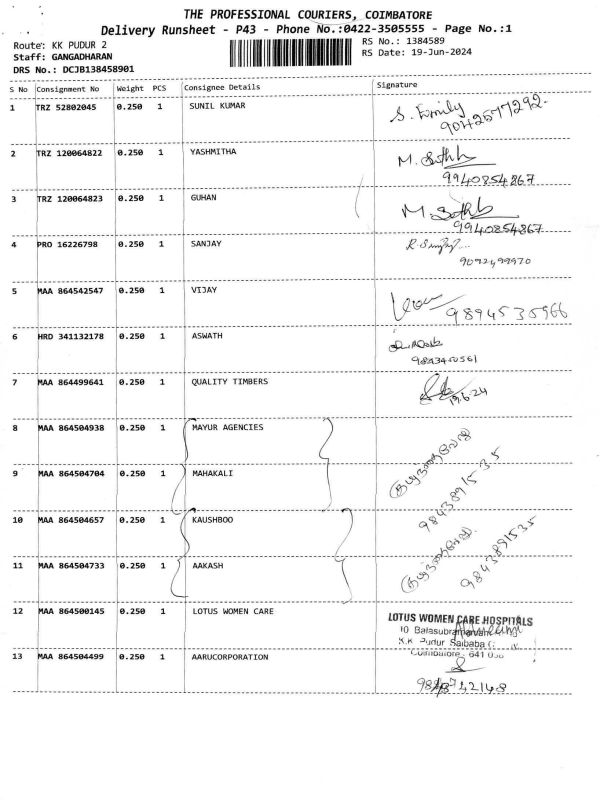 THE PROFESSIONAL COURIERS, COIMBATORE
Delivery Runsheet - P43 - Phone No.:0422-3505555 - Page No.:1
Route: KK PUDUR 2
Staff: GANGADHARAN
DRS No.: DCJB138458901
RS No.: 1384589
RS Date: 19-Jun-2024
S No Consignment No Weight PCS Consignee Details Signature
1 TRZ 52802045 0.250 1 SUNIL KUMAR
9042577292.
2 TRZ 120064822 0.250 1 YASHMITHA M.
9940854867
3 TRZ 120064823 0.250 1 GUHAN M.
9940854867
4 PRO 16226798 0.250 1 SANJAY
9092499970
5 MAA 864542547 0.250 1 VIJAY
9894535966
6 HRD 341132178 0.250 1 ASWATH
7 MAA 864499641 0.250 1 QUALITY TIMBERS
19.6.24
8 MAA 864504938 0.250 1 MAYUR AGENCIES
9 MAA 864504704 0.250 1 MAHAKALI
9843891535
10 MAA 864504657 0.250 1 KAUSHBOO
11 MAA 864504733 0.250 1 AAKASH
9843891535
12 MAA 864500145 0.250 1 LOTUS WOMEN CARE
LOTUS WOMEN CARE HOSPITALS
10 
K.K Pudur Saibaba
Coimbatore 641
13 MAA 864504499 0.250 1 AARUCORPORATION